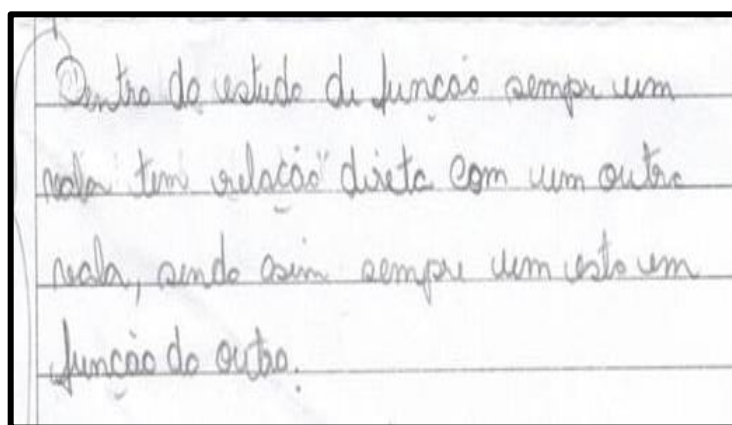 Dentro do estudo de função sempre um
valor "tem relação" direta com um outro
valor, sendo asim sempre um esta em
função do outro.